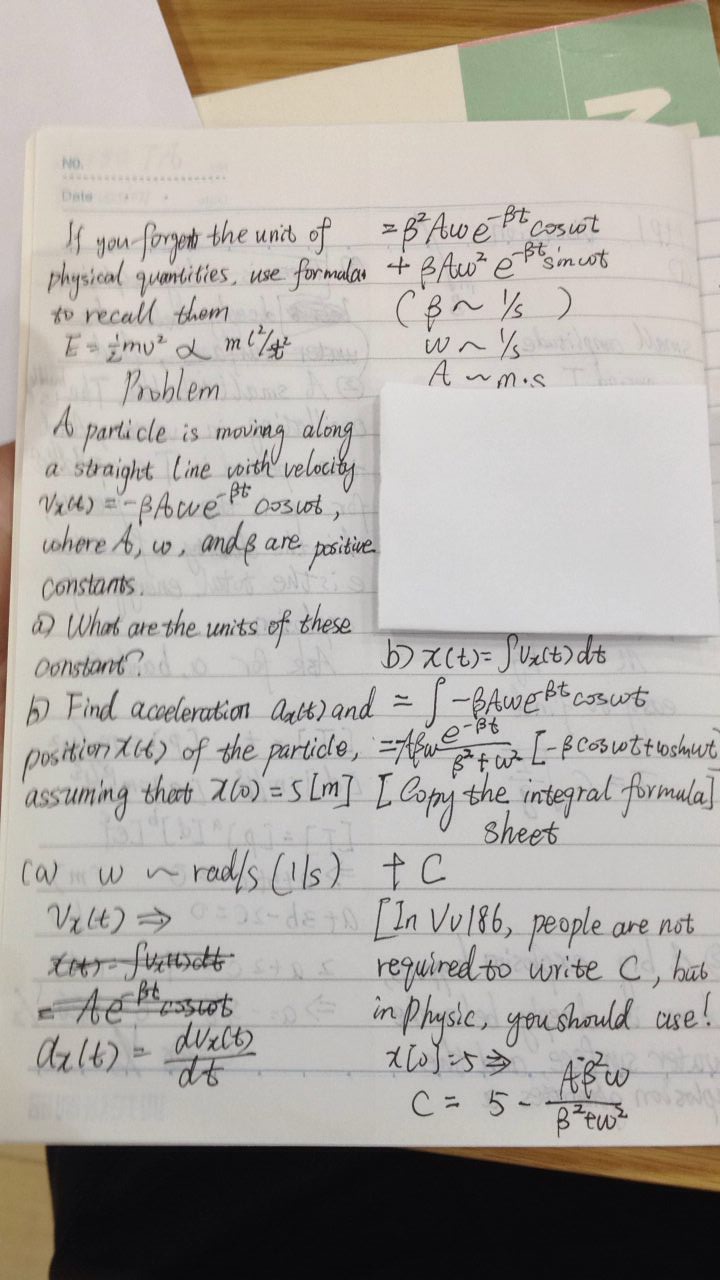 No.
Date
If you forget the unit of
physical quantities, use formular
to recall them
E = ½mv² ∝ m l²/t²
Problem
A particle is moving along
a straight line with velocity
Vx(t) = -βAωe^-βt cosωt,
where A, ω, and β are positive
constants.
a) What are the units of these
constant?
b) Find acceleration ax(t) and
position x(t) of the particle,
assuming that x(0) = 5 [m]
(a) ω ~ rad/s (1/s)
Vx(t) ⇒
x(t) = ∫Vx(t)dt
= Ae^-βt cosωt
ax(t) = dVx(t)/dt
= β²Aωe^-βt cosωt
+ βAω² e^-βt sinωt
(β ~ 1/s )
ω ~ 1/s
A ~ m·s
b) x(t) = ∫Vx(t)dt
= ∫ -βAωe^-βt cosωt
= -Aβω e^-βt/β²+ω² [-βcosωt+ωsinωt]
[Copy the integral formula]
sheet
+ C
[In VV186, people are not
required to write C, but
in physic, you should use!
x[0]=5 ⇒
C = 5 - Aβ²ω/β²+ω²